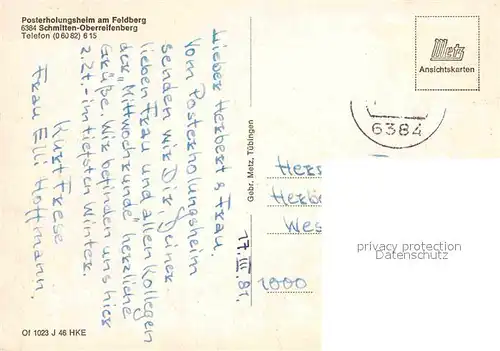 Posterholungsheim am Feldberg
6384 Schmitten-Oberreifenberg
Telefon (0 60 82) 6 15
Lieber Herbert & Frau.
Vom Posterholungsheim
senden wir Dir, Deiner
lieben Frau und allen Kollegen
der "Mittwochrunde" herzliche
Grüße. Wir befinden uns hier
z.Zt. - im tiefsten Winter.
Kurt Frese
Frau Elli Hoffmann.
17.III.81.
Gebr. Metz, Tübingen
Metz
Ansichtskarten
6384
Hers
Herb
Wes
1000
privacy protection
oldthing.com
Of 1023 J 46 HKE